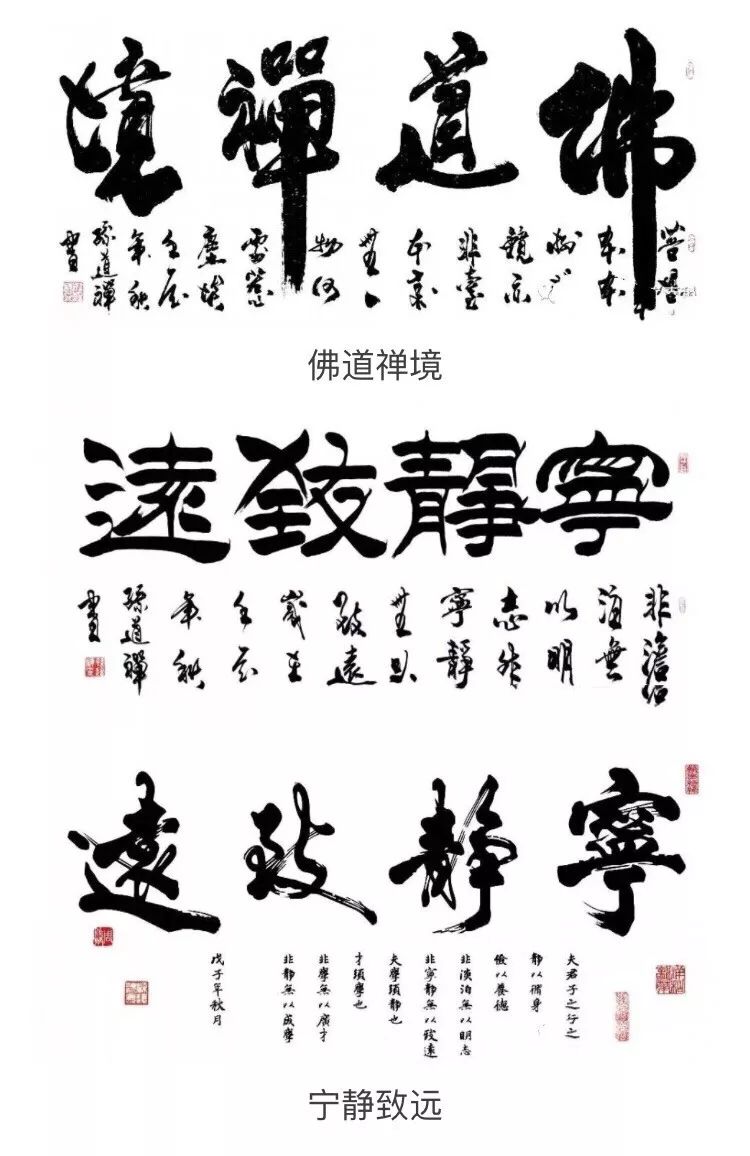 佛道禪境
菩提
鏡亦
非臺
本來
無一
物何
塵埃
年秋
孫道禪
書
佛道禅境
寧靜致遠
非澹
無
以明
志非
寧靜
無以
致遠
歲在
年秋
孫道禪
書
寧靜致遠
夫君子之行之
靜以脩身
儉以養德
非淡泊無以明志
非寧靜無以致遠
夫學須靜也
才須學也
非學無以廣才
非靜無以成學
戊子年秋月
宁静致远